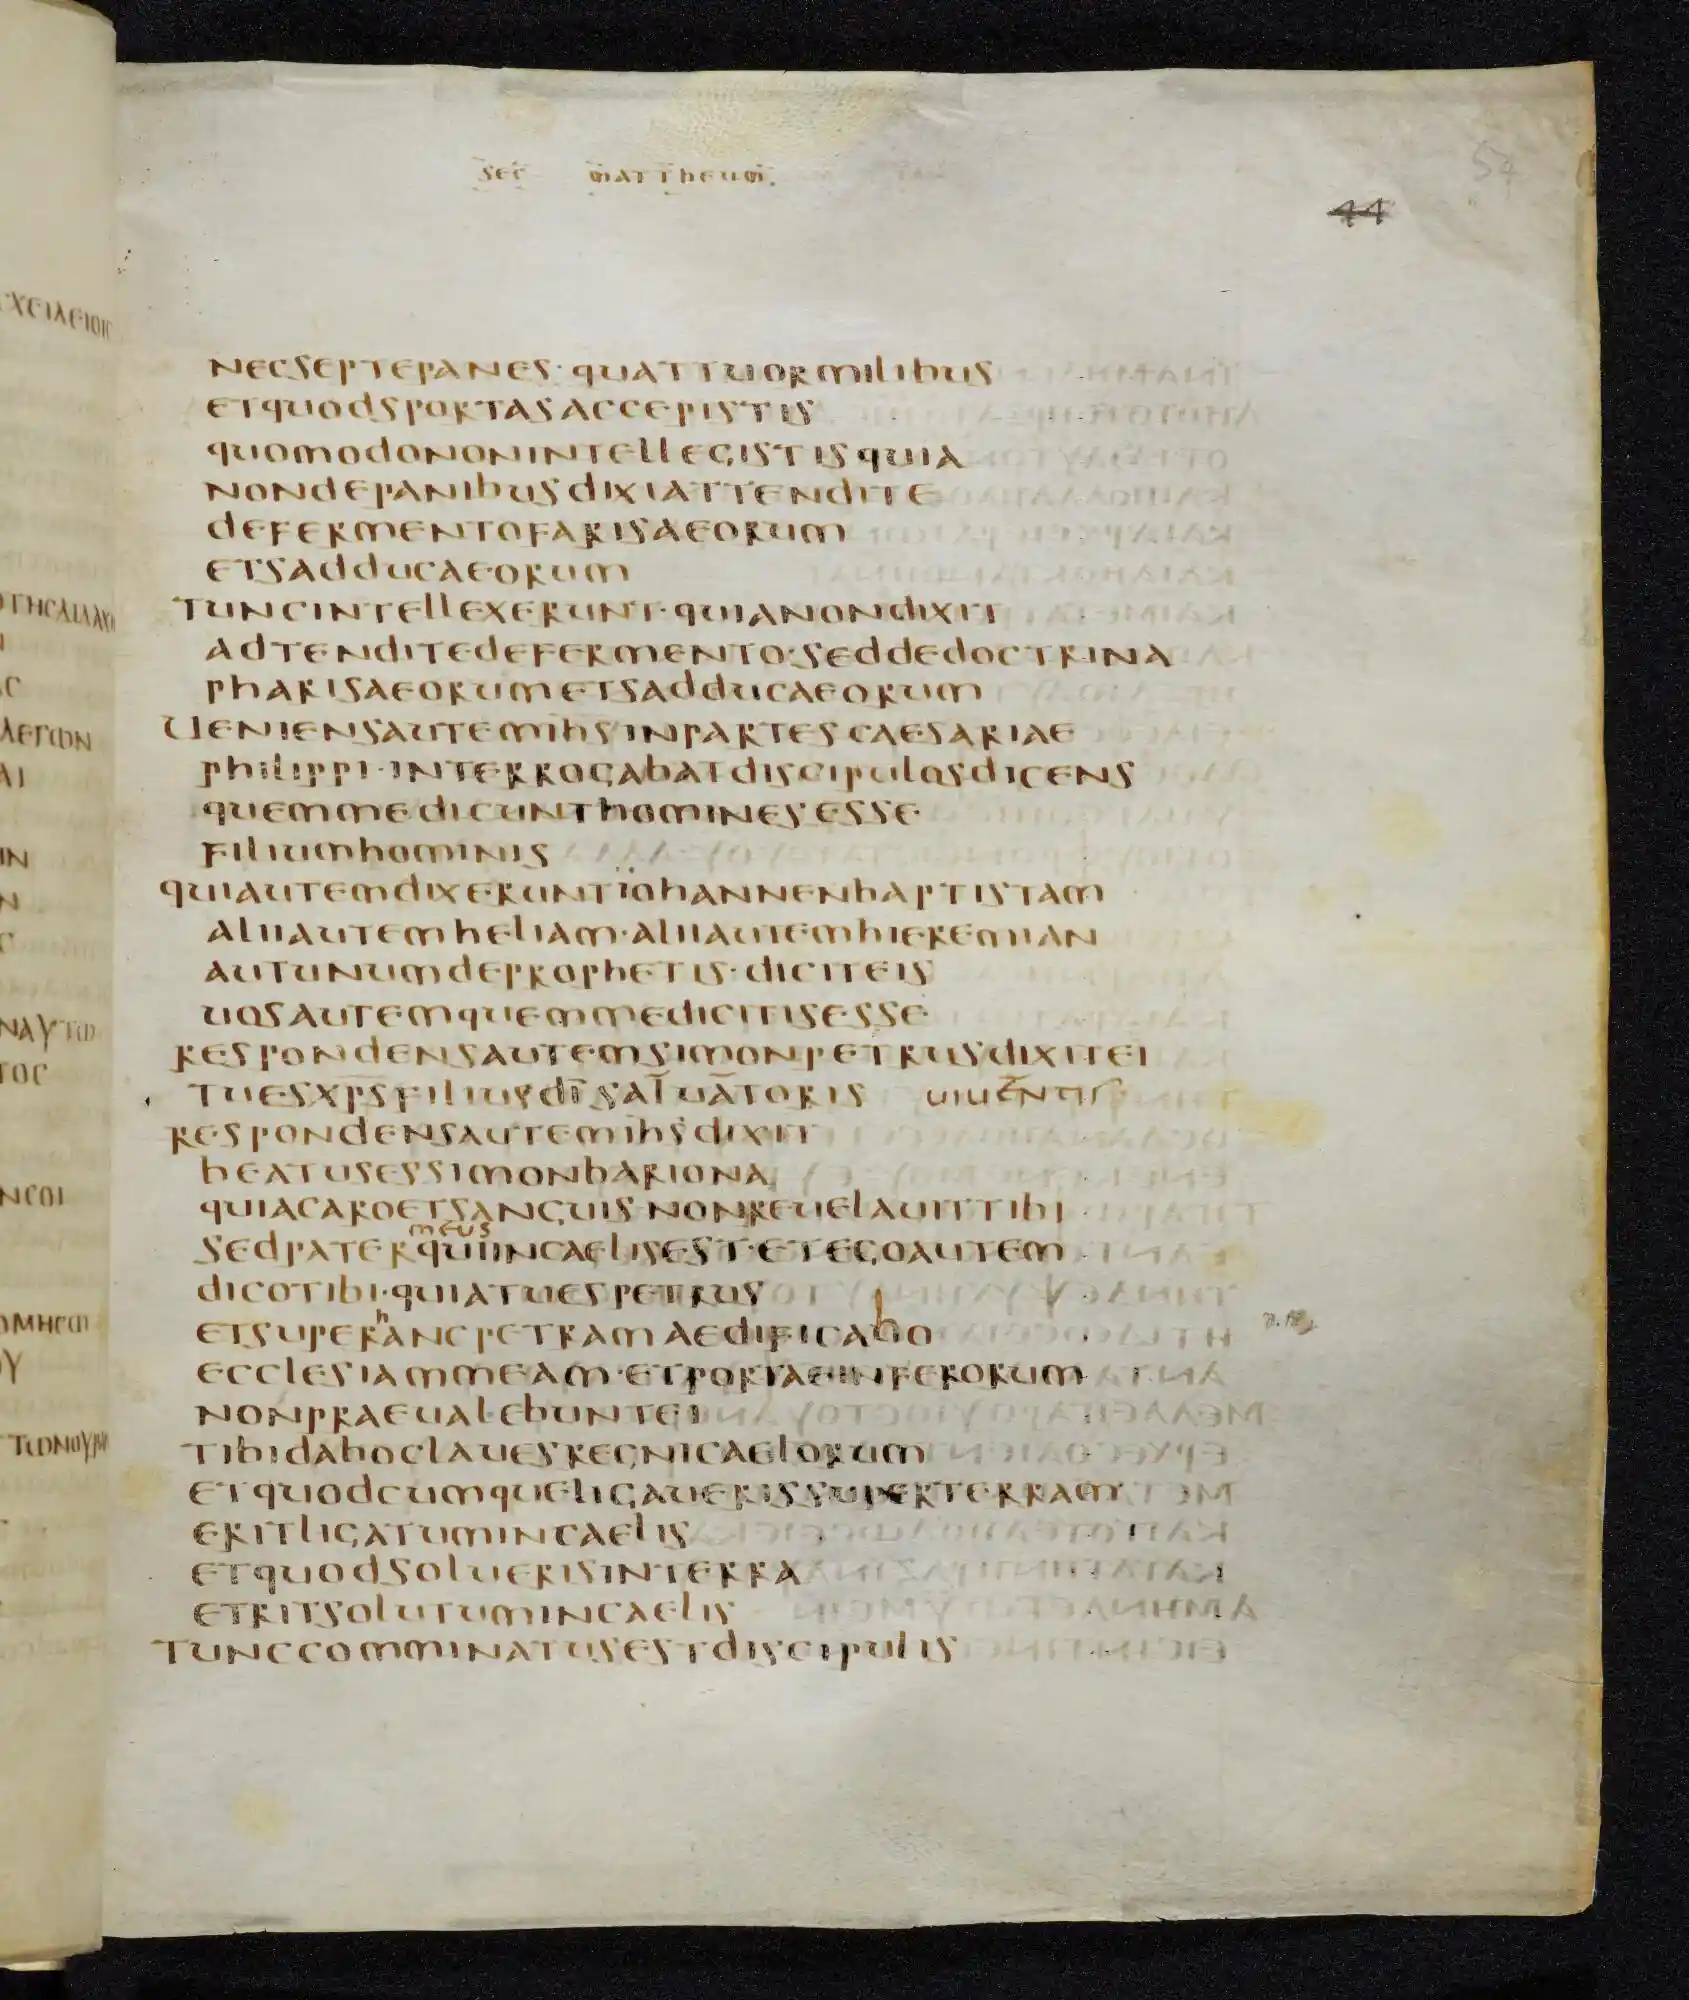 SEC MATTHEUM
54
44
NECSEPTEPANES · QUATTUORMILIBUS
ETQUODSPORTASACCEPISTIS
QUOMODONONINTELLEGISTISQUIA
NONDEPANIBUSDIXIATTENDITE
DEFERMENTOFARISAEORUM
ETSADDUCAEORUM
TUNCINTELLEXERUNT · QUIANONDIXIT
ADTENDITEDEFERMENTO · SEDDEDOCTRINA
PHARISAEORUMETSADDUCAEORUM
UENIENSAUTEMIHSINPARTESCAESARIAE
PHILIPPI · INTERROGABATDISCIPULOSDICENS
QUEMMEDICUNTHOMINESESSE
FILIUMHOMINIS
QUIAUTEMDIXERUNTIOHANNENBAPTISTAM
ALIIAUTEMHELIAM · ALIIAUTEMHIEREMIAN
AUTUNUMDEPROPHETIS · DICITEIS
UOSAUTEMQUEMMEDICITISESSE
RESPONDENSAUTEMSIMONPETRUSDIXITEI
TUESXPSFILIUSDISALUATORIS UIUENTIS
RESPONDENSAUTEMIHSDIXIT
BEATUSESSIMONBARIONA
QUIACAROETSANGUIS · NONREUELAUITTIBI
MEUS
SEDPATERQUIINCAELISEST · ETEGOAUTEM
DICOTIBI · QUIATUESPETRUS
h
ETSUPERANCPETRAMAEDIFICABO
ECCLESIAMMEAM · ETPORTAEINFERORUM
NONPRAEUALEBUNTEI
TIBIDABOCLAUESREGNICAELORUM
ETQUODCUMQUELIGAUERISSUPERTERRAM
ERITLIGATUMINCAELIS
ETQUODSOLUERISINTERRA
ETRITSOLUTUMINCAELIS
TUNCCOMMINATUSESTDISCIPULIS